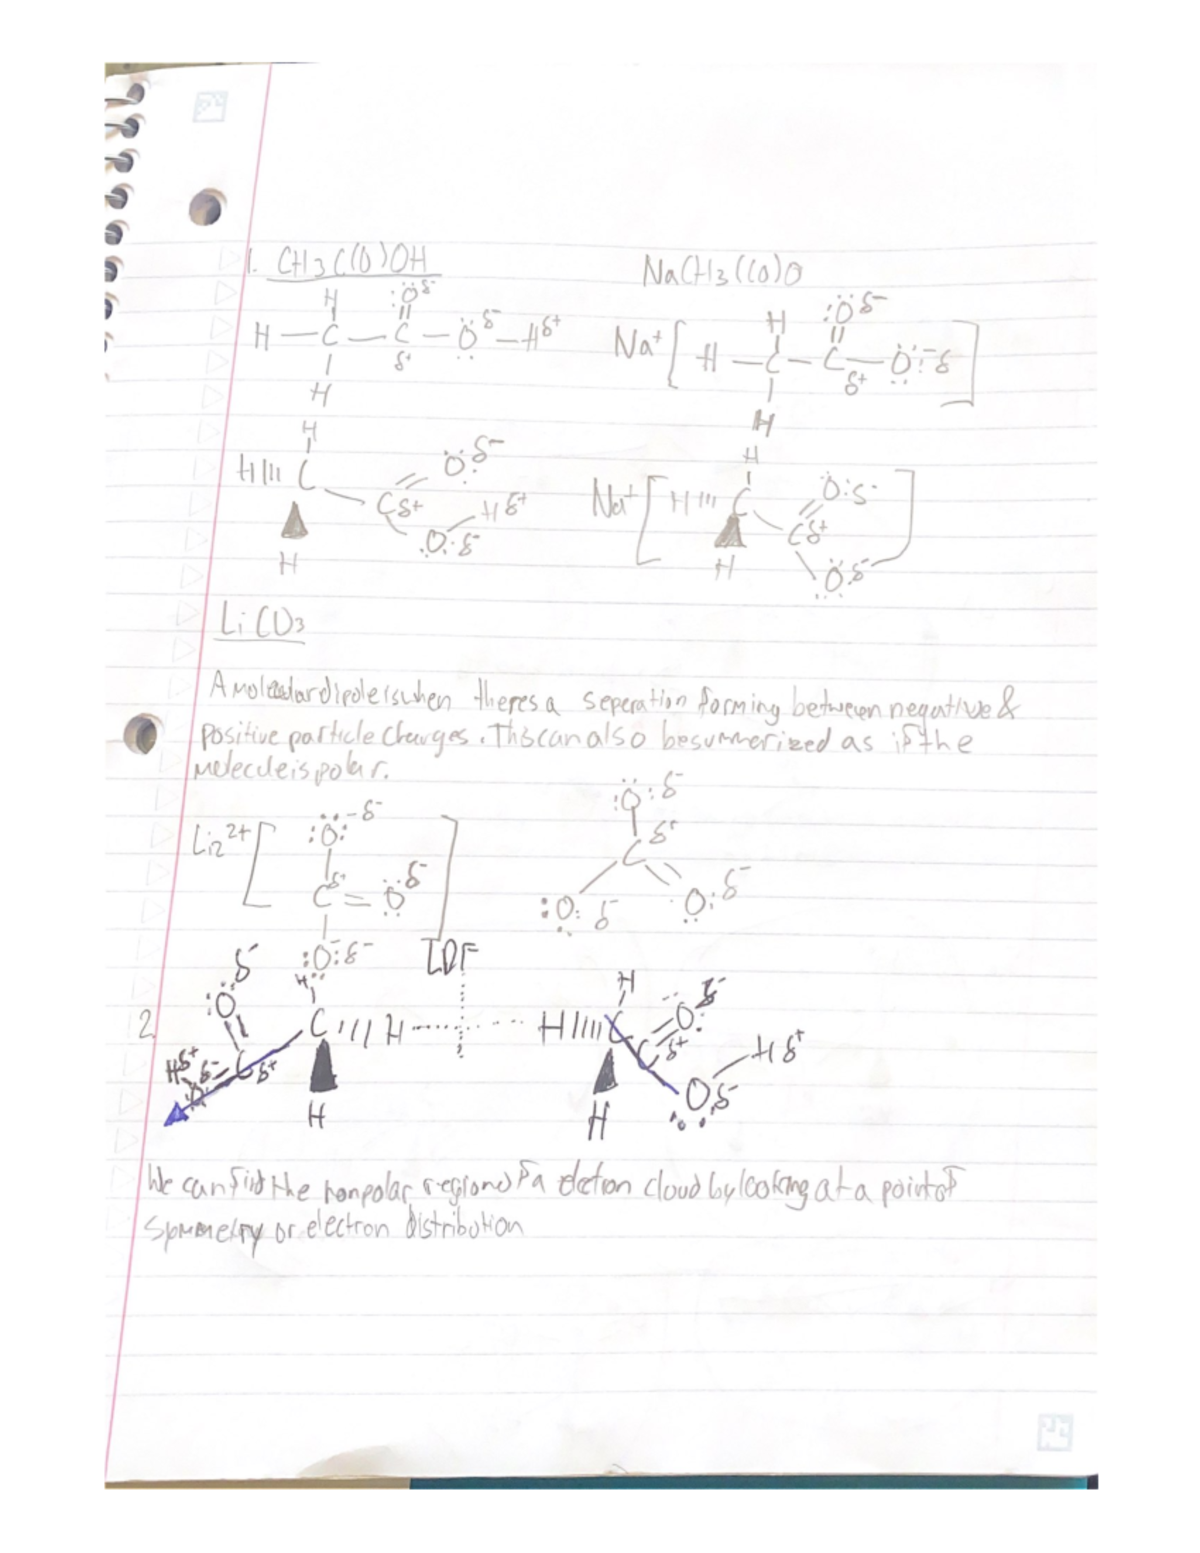 1. CH3C(O)OH NaCH3C(O)O
H :Ö δ-
H — C — C — Ö δ- — H δ+
δ+
H
H :Ö δ-
Na+ [ H — C — C — Ö: - δ ]
δ+
H
H
H C Ö: δ-
C δ+ H δ+
H :O: δ-
H
Na+ [ H C O: δ- ]
C δ+
H O: δ-
LiCO3
A molecular dipole is when theres a seperation forming between negative &
positive particle charges. This can also be summerized as if the
molecule is polar.
Li2 2+ [ :O: - δ-
C δ+ = O δ-
:O: - δ- ]
:O: δ-
C δ+
:O: δ- O: δ-
LDF
2. δ- :O H C H H H C O: δ-
H δ+ δ- C δ+ C δ+ H δ+
O H H O δ-
We can find the nonpolar region of a eletron cloud by looking at a point of
symmetry or electron distribution